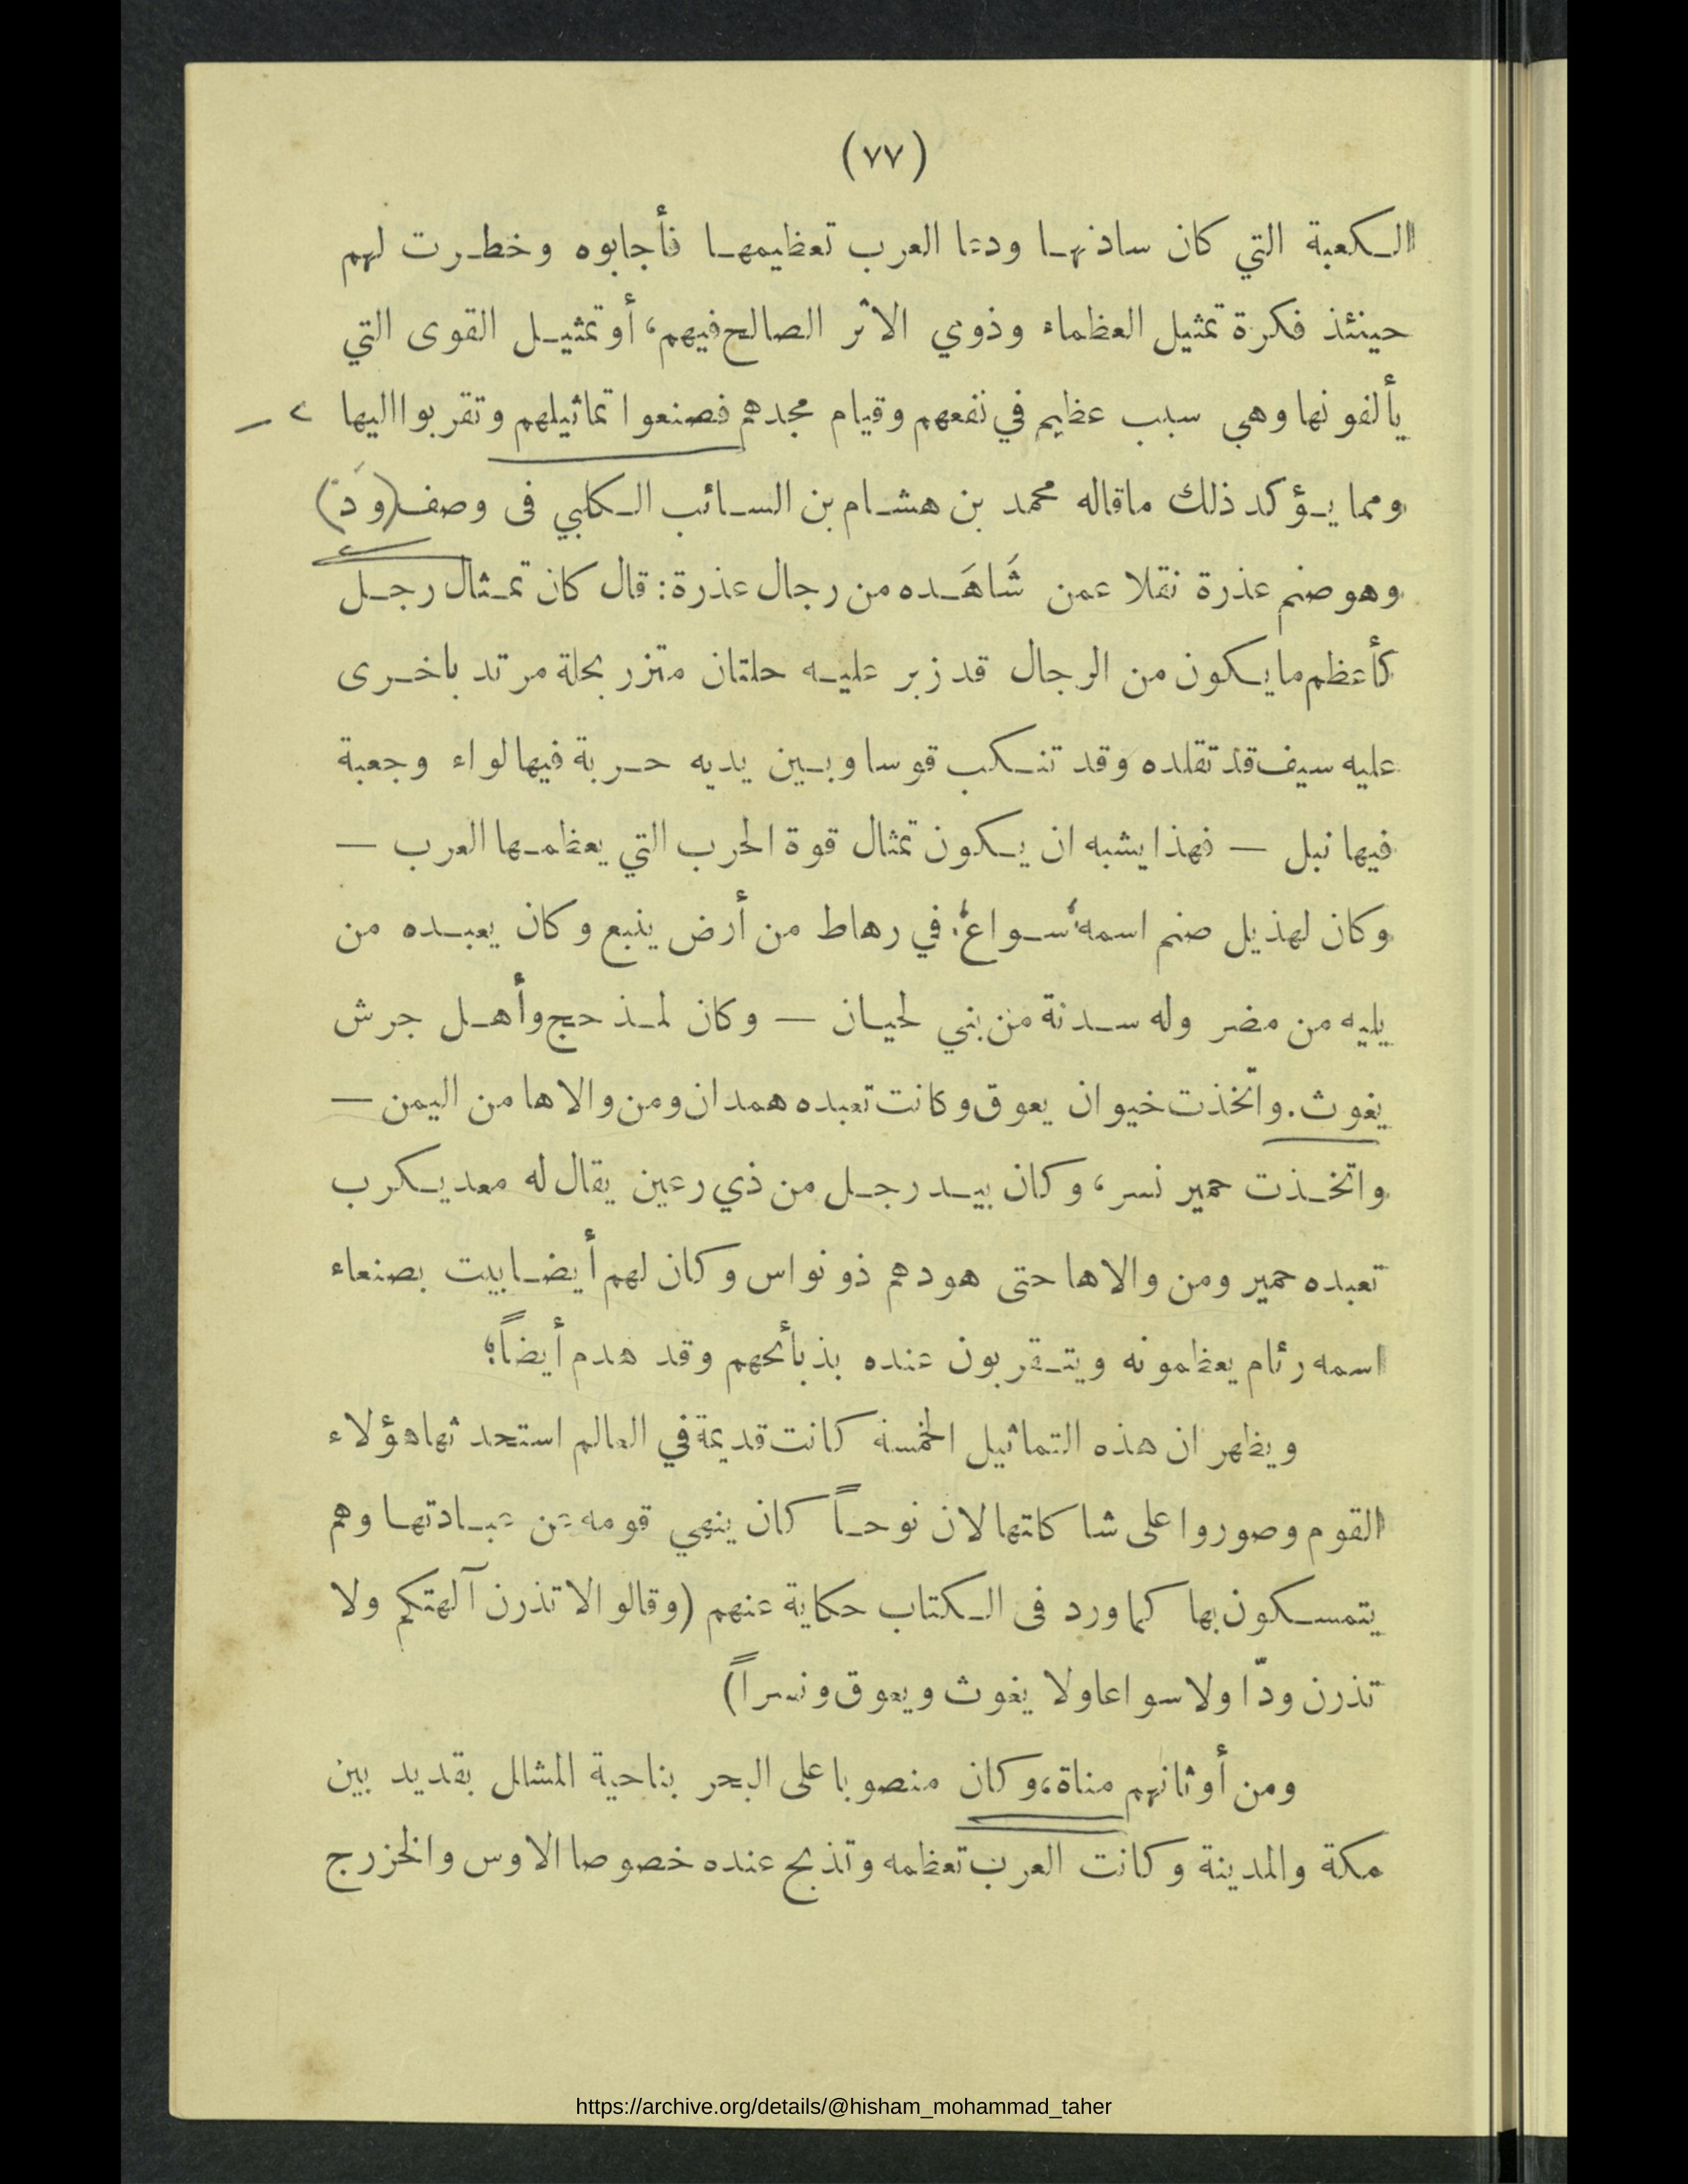 (٧٧)
الكعبة التي كان سادنها ودعا العرب تعظيمها فأجابوه وخطرت لهم
حينئذ فكرة تمثيل العظماء وذوي الاثر الصالح فيهم، أو تمثيل القوى التي
يألفونها وهي سبب عظيم في نفعهم وقيام مجدهم فصنعوا تماثيلهم وتقربوا اليها
ومما يؤكد ذلك ماقاله محمد بن هشام بن السائب الكلبي فى وصف (وَد)
وهو صنم عذرة نقلا عمن شَاهَده من رجال عذرة: قال كان تمثال رجل
كأعظم مايكون من الرجال قد زبر عليه حلتان متزر بحلة مرتد باخرى
عليه سيف قد تقلده وقد تنكب قوسا وبين يديه حربة فيها لواء وجعبة
فيها نبل — فهذا يشبه ان يكون تمثال قوة الحرب التي يعظمها العرب —
وكان لهذيل صنم اسمه سُواعُ في رهاط من أرض ينبع وكان يعبده من
يليه من مضر وله سدنة من بني لحيان — وكان لمذحج وأهل جرش
يغوث. واتخذت خيوان يعوق وكانت تعبده همدان ومن والاها من اليمن —
واتخذت حمير نسر، وكان بيد رجل من ذي رعين يقال له معديكرب
تعبده حمير ومن والاها حتى هودهم ذو نواس وكان لهم أيضا بيت بصنعاء
اسمه رئام يعظمونه ويتقربون عنده بذبأئحهم وقد هدم أيضاً؛
ويظهر ان هذه التماثيل الخمسة كانت قديمة في العالم استحدثها هؤلاء
القوم وصوروا على شاكاتها لان نوحاً كان ينهي قومه عن عبادتها وهم
يتمسكون بها كما ورد فى الكتاب حكاية عنهم (وقالوا لا تذرن آلهتكم ولا
تذرن ودّا ولا سواعا ولا يغوث ويعوق ونسراً)
ومن أوثانهم مناة، وكان منصوبا على البحر بناحية المشلل بقديد بين
مكة والمدينة وكانت العرب تعظمه وتذبح عنده خصوصا الاوس والخزرج
https://archive.org/details/@hisham_mohammad_taher